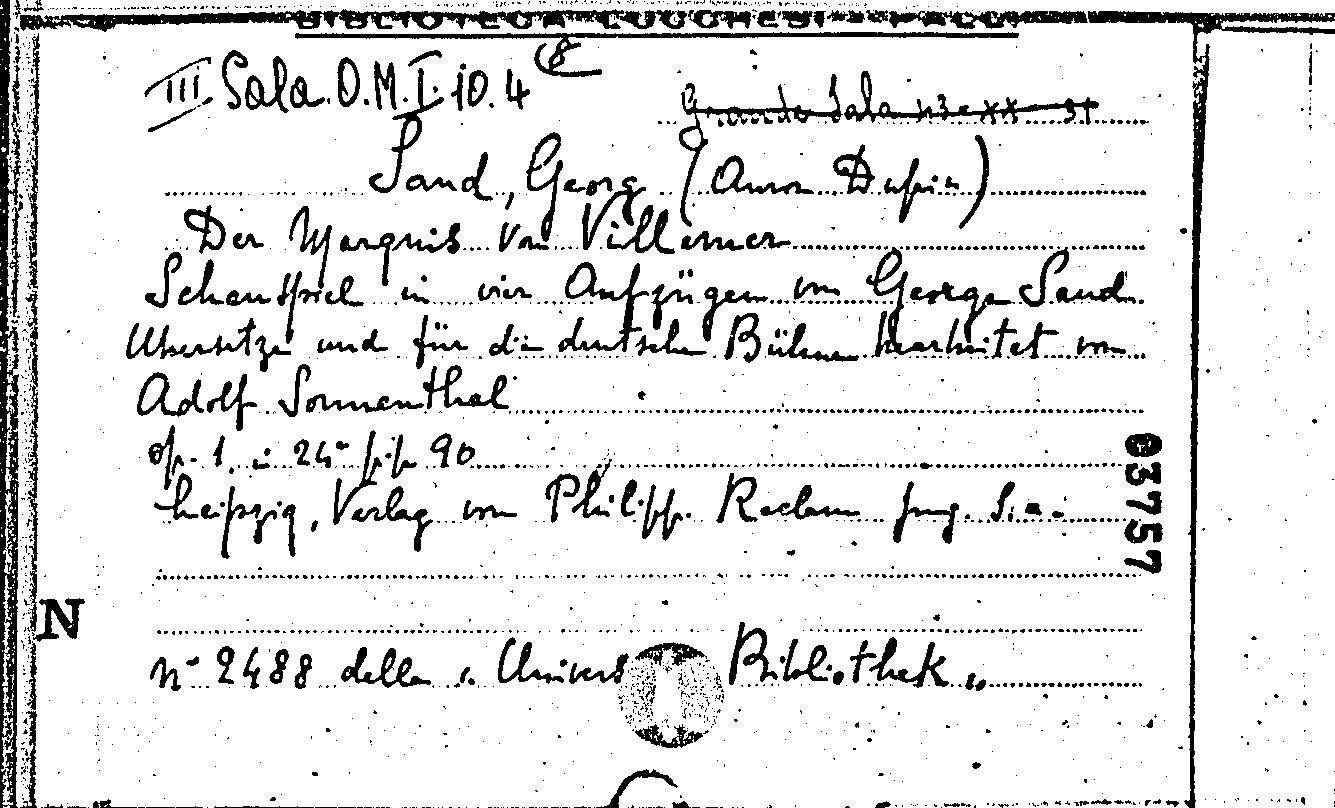 BIBLIOTECA LUCCHESI - PALLI
III Sala O.M.I. 10. 4 (8
Grande Sala n3 - XX - 31
Sand, Georg (Auror Dupin)
Der Marquis von Villemer
Schauspiel in vier Aufzügen von George Sand
Übersetzt und für die deutsche Bühne bearbeitet von
Adolf Sonnenthal
op. 1. in 24° pp. 90
Leipzig, Verlag von Philipp. Reclam jung. S. a.
03757
N
n° 2488 della « Univers Bibliothek »